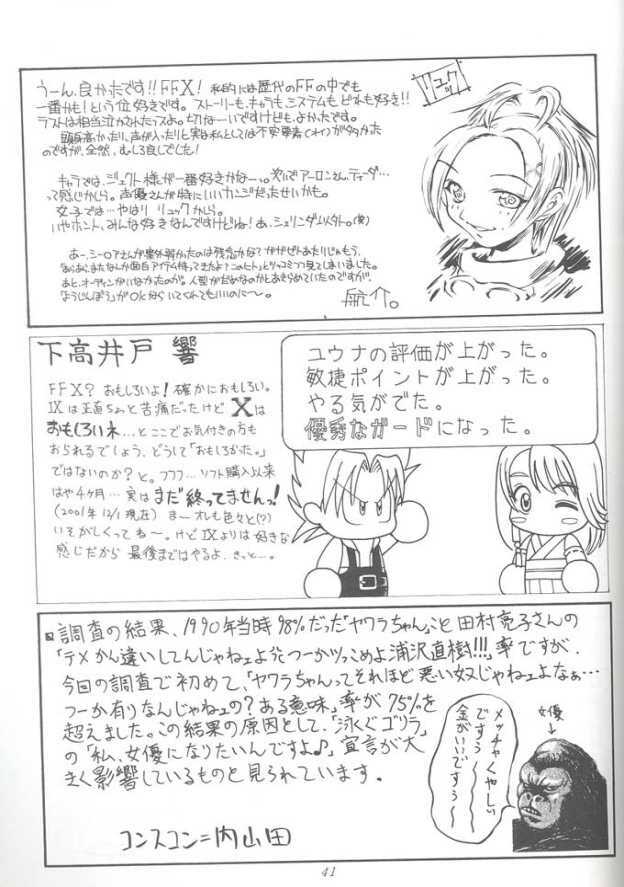 うーん、良かったです!! FFX! 私的には歴代のFFの中でも
一番かも!という位好きです。ストーリーも、キャラも、システムも どれも好き!!
ラストは相当泣かされたっスよ。切な〜いですけども、よかったです。
頭身高かったり、声が入ったりと実は私としては不安要素が多かった
のですが、全然、むしろ良しでした!
リュック
キャラでは、ジェクト様が一番好きかなー。次いでアーロンさん、ティーダ…
って感じかしら。声優さんが特にいいカンジだったせいかも。
女子では…やはり リュックかしら。
いやホント、みんな好きなんですけどね! あ、シェリンダ以外。(笑)
あー、シーモアさんが案外弱かったのは残念かな?
あと、オーディンがいなかったのが。人型がだめなのかとあきらめていたのですが、
ようじんぼう」がOKなら いてくれてもいいのに〜。
下高井戸 響
FFX? おもしろいよ! 確かにおもしろい。
IXは正直ちょっと苦痛だったけど Xは
おもしろいネ…とここでお気付きの方も
おられるでしょう、どうして「おもしろかった。」
ではないのか?と。フフフ…ソフト購入以来
はや4ヶ月…実はまだ終ってませんっ!
(2001年12/1現在) ま〜オレも色々と(?)
いそがしくってね〜。けどIXよりは好きな
感じだから 最後まではやるよ、きっと…。
ユウナの評価が上がった。
敏捷ポイントが上がった。
やる気がでた。
優秀なガードになった。
調査の結果、1990年当時98%だった「ヤワラちゃん」こと田村亮子さんの
「テメかん違いしてんじゃねェよ!!つーかツッこめよ浦沢直樹!!!」率ですが、
今回の調査で初めて、「ヤワラちゃんってそれほど悪い奴じゃねェよなぁ…
つーか有りなんじゃねェの?ある意味」率が75%を
超えました。この結果の原因として、「泳ぐゴリラ」
の「私、女優になりたいんですよ♪」宣言が大
きく影響しているものと見られています。
メッチャくやしい
ですぅ〜
金がいいですぅ〜
女優
コンスコン=内山田
41